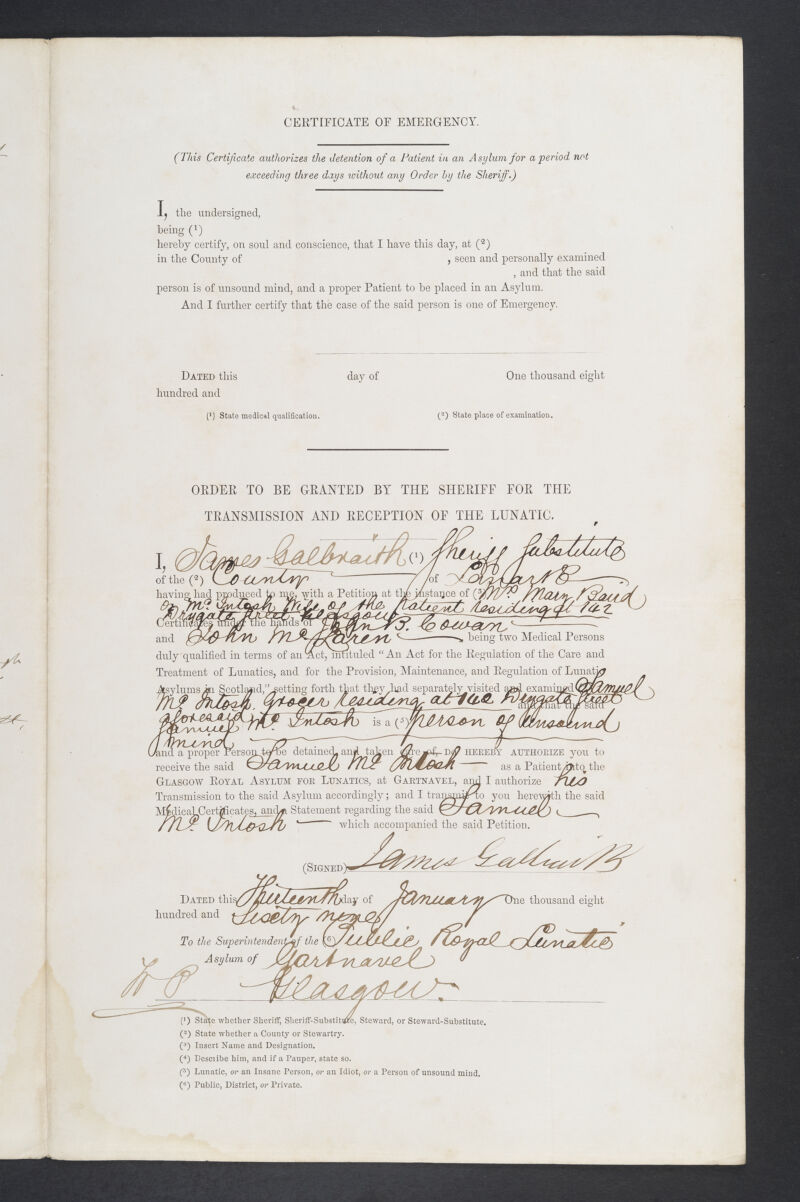 CERTIFICATE OF EMERGENCY.
(This Certificate authorizes the detention of a Patient in an Asylum for a period not
exceeding three days without any Order by the Sheriff.)
I, the undersigned,
being (¹)
hereby certify, on soul and conscience, that I have this day, at (²)
in the County of , seen and personally examined
, and that the said
person is of unsound mind, and a proper Patient to be placed in an Asylum.
And I further certify that the case of the said person is one of Emergency.
DATED this day of One thousand eight
hundred and
(¹) State medical qualification. (²) State place of examination.
ORDER TO BE GRANTED BY THE SHERIFF FOR THE
TRANSMISSION AND RECEPTION OF THE LUNATIC.
I, James Galbraith (¹) Sheriff Substitute
of the (²) County of Lanark
having had produced to me, with a Petition at the instance of (³) Mrs. Mary Baird
or McIntosh Wife of the Patient residing at 162
Street Glasgow
Certificates under the hands of John B. Cowan
and John McLaren being two Medical Persons
duly qualified in terms of an Act, intituled "An Act for the Regulation of the Care and
Treatment of Lunatics, and for the Provision, Maintenance, and Regulation of Lunatic
Asylums in Scotland," setting forth that they had separately visited and examined (⁴) Samuel
McIntosh Grocer residing at 162 Street
aforesaid and that the said
Samuel McIntosh is a (⁵) person of unsound
mind
and a proper Person to be detained and taken care of, DO HEREBY AUTHORIZE you to
receive the said Samuel McIntosh as a Patient into the
GLASGOW ROYAL ASYLUM FOR LUNATICS, at GARTNAVEL, and I authorize his
Transmission to the said Asylum accordingly; and I transmit to you herewith the said
Medical Certificates, and a Statement regarding the said Samuel
McIntosh which accompanied the said Petition.
(SIGNED) James Galbraith
DATED this Thirteenth day of January One thousand eight
hundred and Sixty nine
To the Superintendent of the (⁶) Public Royal Lunatic
Asylum of Gartnavel
Glasgow.
(¹) State whether Sheriff, Sheriff-Substitute, Steward, or Steward-Substitute.
(²) State whether a County or Stewartry.
(³) Insert Name and Designation.
(⁴) Describe him, and if a Pauper, state so.
(⁵) Lunatic, or an Insane Person, or an Idiot, or a Person of unsound mind.
(⁶) Public, District, or Private.